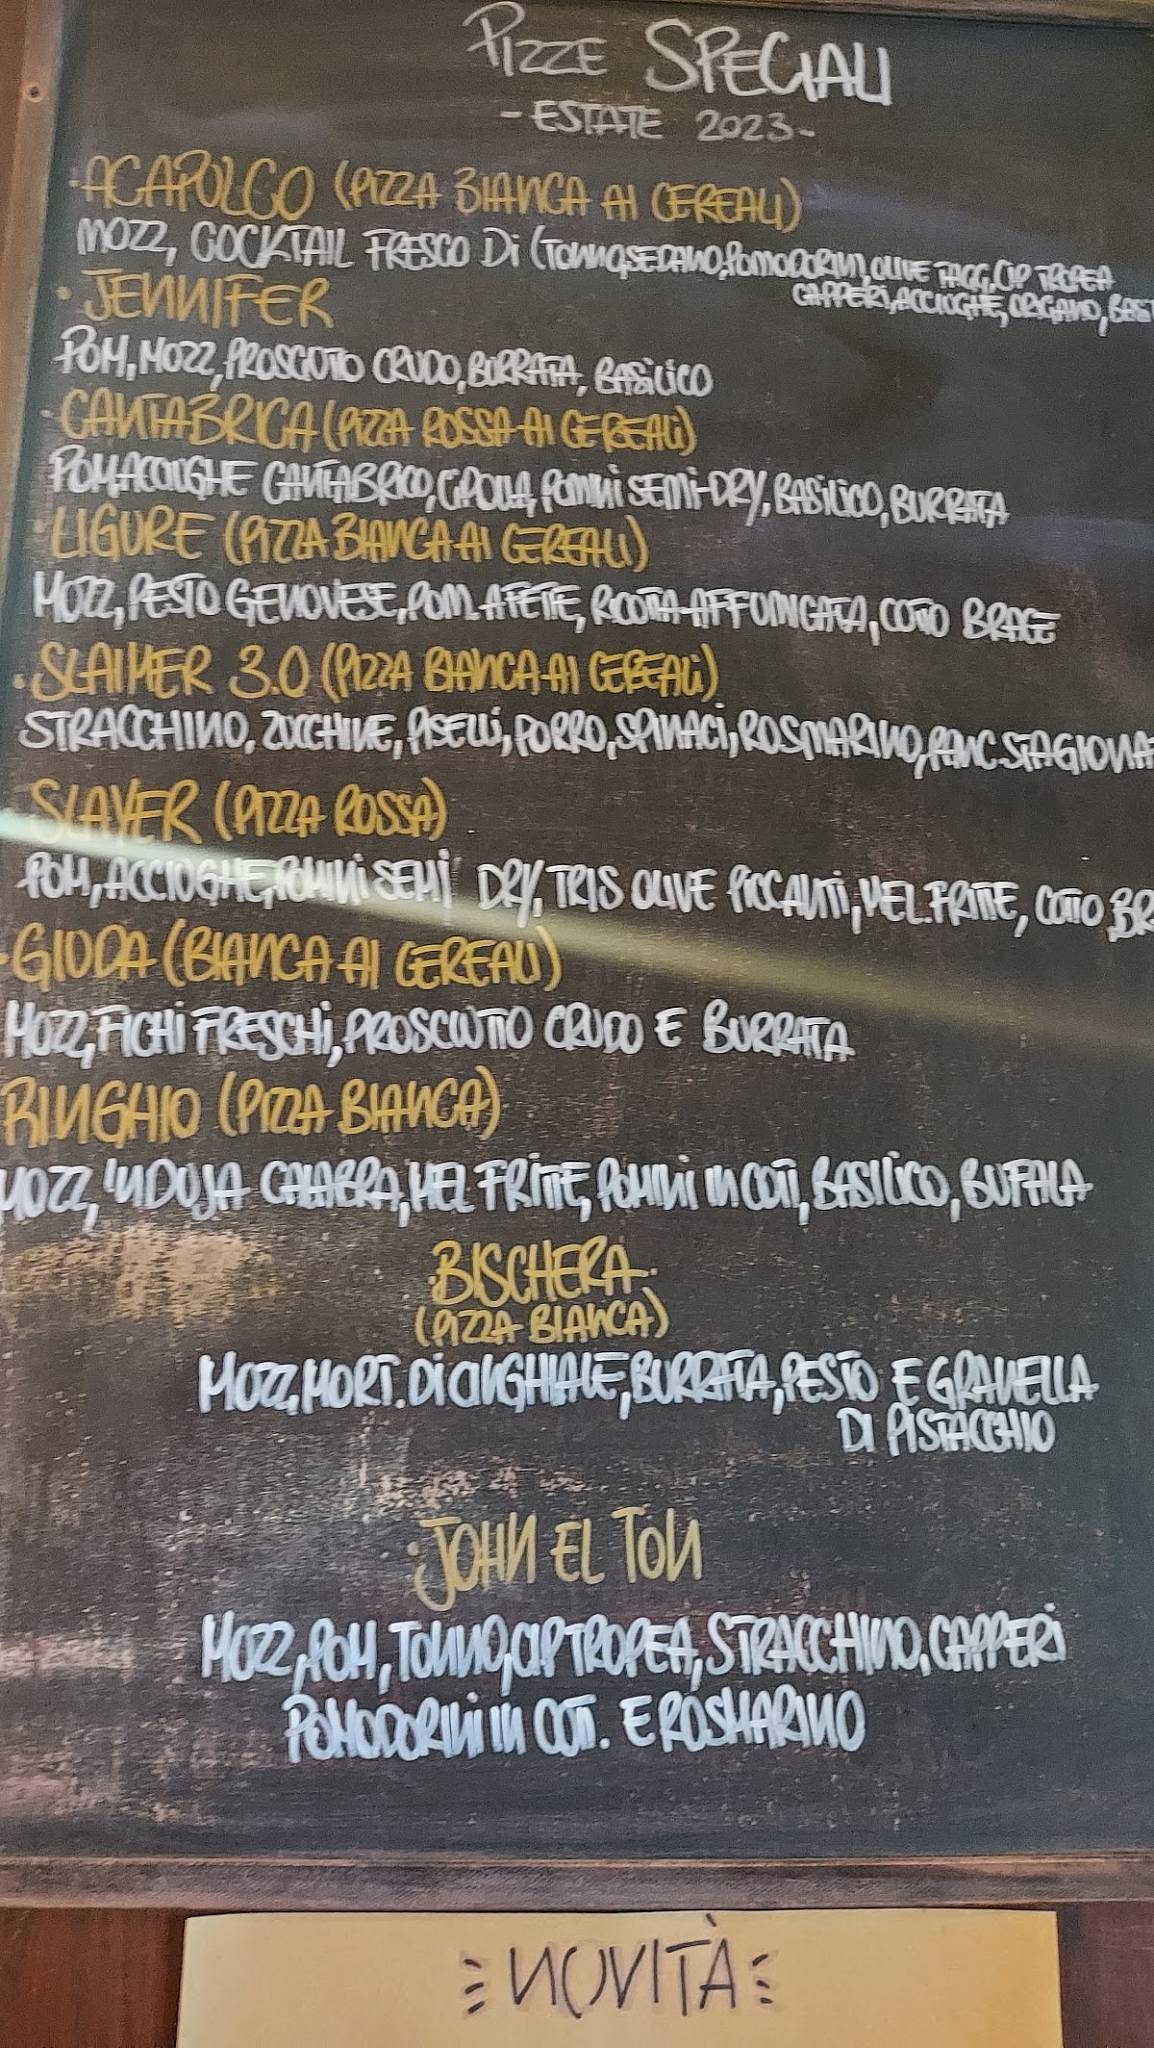 PIZZE SPECIALI
- ESTATE 2023 -
· ACAPOLCO (PIZZA BIANCA AI CEREALI)
MOZZ, COCKTAIL FRESCO DI (TONNO, SEDANO, POMODORINI, OLIVE TAGG, CIP TROPEA
CAPPERI, ACCIOGHE, ORIGANO, BASI
· JENNIFER
POM, MOZZ, PROSCIOTTO CRUDO, BURRATA, BASILICO
· CANTABRICA (PIZZA ROSSA AI CEREALI)
POM, ACCIUGHE CANTABRICO, CIPOLLA, POMINI SEMI-DRY, BASILICO, BURRATA
· LIGURE (PIZZA BIANCA AI CEREALI)
MOZZ, PESTO GENOVESE, POM. A FETTE, RICOTTA AFFUMICATA, COTTO BRACE
· SLAIMER 3.0 (PIZZA BIANCA AI CEREALI)
STRACCHINO, ZUCCHINE, PISELLI, PORRO, SPINACI, ROSMARINO, PANC. STAGIONAT
SLAYER (PIZZA ROSSA)
POM, ACCIOGHE, POMINI SEMI DRY, TRIS OLIVE PICCANTI, MEL. FRITTE, COTTO BR
· GIUDA (BIANCA AI CEREALI)
MOZZ, FICHI FRESCHI, PROSCIUTTO CRUDO E BURRATA
RINGHIO (PIZZA BIANCA)
MOZZ, 'NDUJA CALABRA, MEL FRITTE, POMINI IN COTT, BASILICO, BUFALA
· BISCHERA ·
(PIZZA BIANCA)
MOZZ, MORT. DI CINGHIALE, BURRATA, PESTO E GRANELLA
DI PISTACCHIO
· JOHN EL TON
MOZZ, POM, TONNO, CIP TROPEA, STRACCHINO, CAPPERI
POMODORINI IN COTT. E ROSMARINO
NOVITÀ